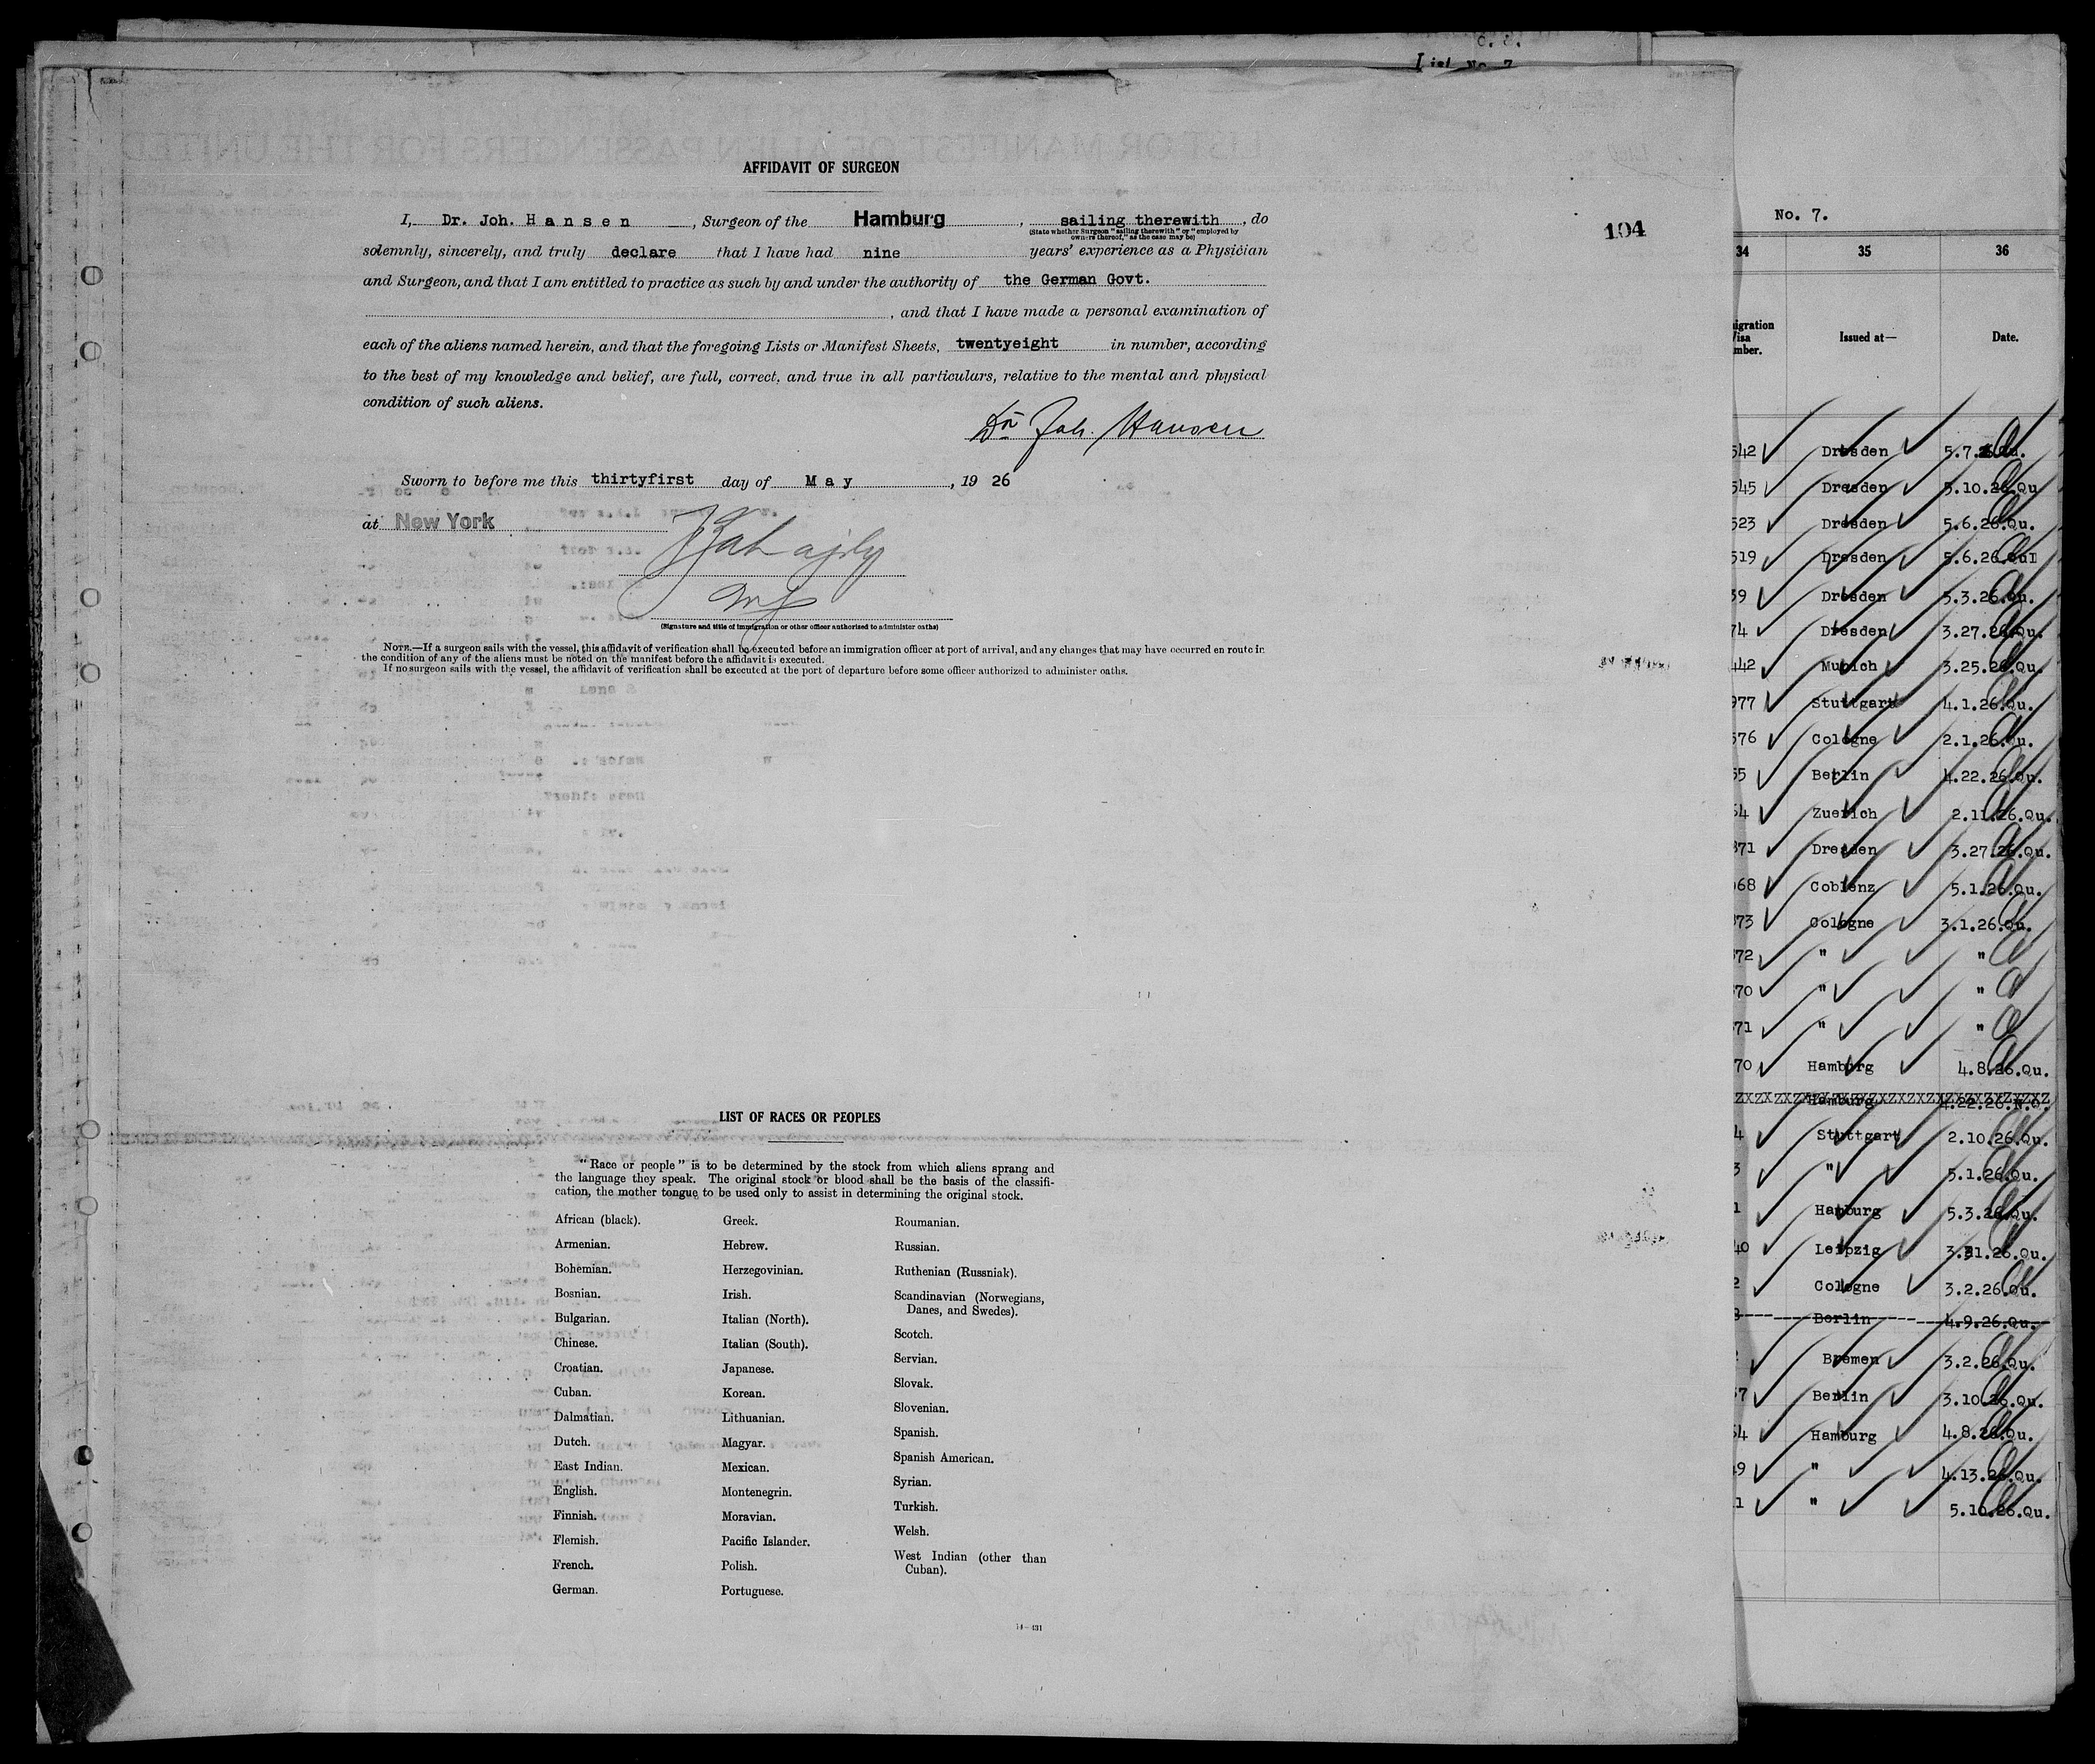 C. C.
List No. 7
AFFIDAVIT OF SURGEON
I, Dr. Joh. Hansen, Surgeon of the Hamburg, sailing therewith, do
(State whether Surgeon "sailing therewith" or "employed by
owners thereof," as the case may be)
solemnly, sincerely, and truly declare that I have had nine years' experience as a Physician
and Surgeon, and that I am entitled to practice as such by and under the authority of the German Govt.
, and that I have made a personal examination of
each of the aliens named herein, and that the foregoing Lists or Manifest Sheets, twentyeight in number, according
to the best of my knowledge and belief, are full, correct, and true in all particulars, relative to the mental and physical
condition of such aliens.
Dr Joh. Hansen
Sworn to before me this thirtyfirst day of May, 1926
at New York
(Signature and title of immigration or other officer authorized to administer oaths)
NOTE.—If a surgeon sails with the vessel, this affidavit of verification shall be executed before an immigration officer at port of arrival, and any changes that may have occurred en route in
the condition of any of the aliens must be noted on the manifest before the affidavit is executed.
If no surgeon sails with the vessel, the affidavit of verification shall be executed at the port of departure before some officer authorized to administer oaths.
104
LIST OF RACES OR PEOPLES
"Race or people" is to be determined by the stock from which aliens sprang and
the language they speak. The original stock or blood shall be the basis of the classifi-
cation, the mother tongue to be used only to assist in determining the original stock.
African (black).
Armenian.
Bohemian.
Bosnian.
Bulgarian.
Chinese.
Croatian.
Cuban.
Dalmatian.
Dutch.
East Indian.
English.
Finnish.
Flemish.
French.
German.
Greek.
Hebrew.
Herzegovinian.
Irish.
Italian (North).
Italian (South).
Japanese.
Korean.
Lithuanian.
Magyar.
Mexican.
Montenegrin.
Moravian.
Pacific Islander.
Polish.
Portuguese.
Roumanian.
Russian.
Ruthenian (Russniak).
Scandinavian (Norwegians,
Danes, and Swedes).
Scotch.
Servian.
Slovak.
Slovenian.
Spanish.
Spanish American.
Syrian.
Turkish.
Welsh.
West Indian (other than
Cuban).
14—431
No. 7.
34 35 36
igration
Visa
mber.
Issued at—
Date.
542 Dresden 5.7.26.Qu.
545 Dresden 5.10.26.Qu
523 Dresden 5.6.26.Qu.
519 Dresden 5.6.26.QuI
39 Dresden 5.3.26.Qu.
74 Dresden 3.27.26.Qu.
442 Munich 3.25.26.Qu.
977 Stuttgart 4.1.26.Qu.
576 Cologne 2.1.26.Qu.
55 Berlin 4.22.26.Qu.
54 Zuerich 2.11.26.Qu.
871 Dresden 3.27.26.Qu.
068 Coblenz 5.1.26.Qu.
373 Cologne 3.1.26.Qu.
372 " "
370 " "
371 " "
70 Hamburg 4.8.26.Qu.
Hamburg 4.22.26.N.Q.
4 Stuttgart 2.10.26.Qu.
3 " 5.1.26.Qu.
1 Hamburg 5.3.26.Qu.
40 Leipzig 3.31.26.Qu.
2 Cologne 3.2.26.Qu.
Berlin 4.9.26.Qu.
Bremen 3.2.26.Qu.
57 Berlin 3.10.26.Qu.
54 Hamburg 4.8.26.Qu.
49 " 4.13.26.Qu.
1 " 5.10.26.Qu.